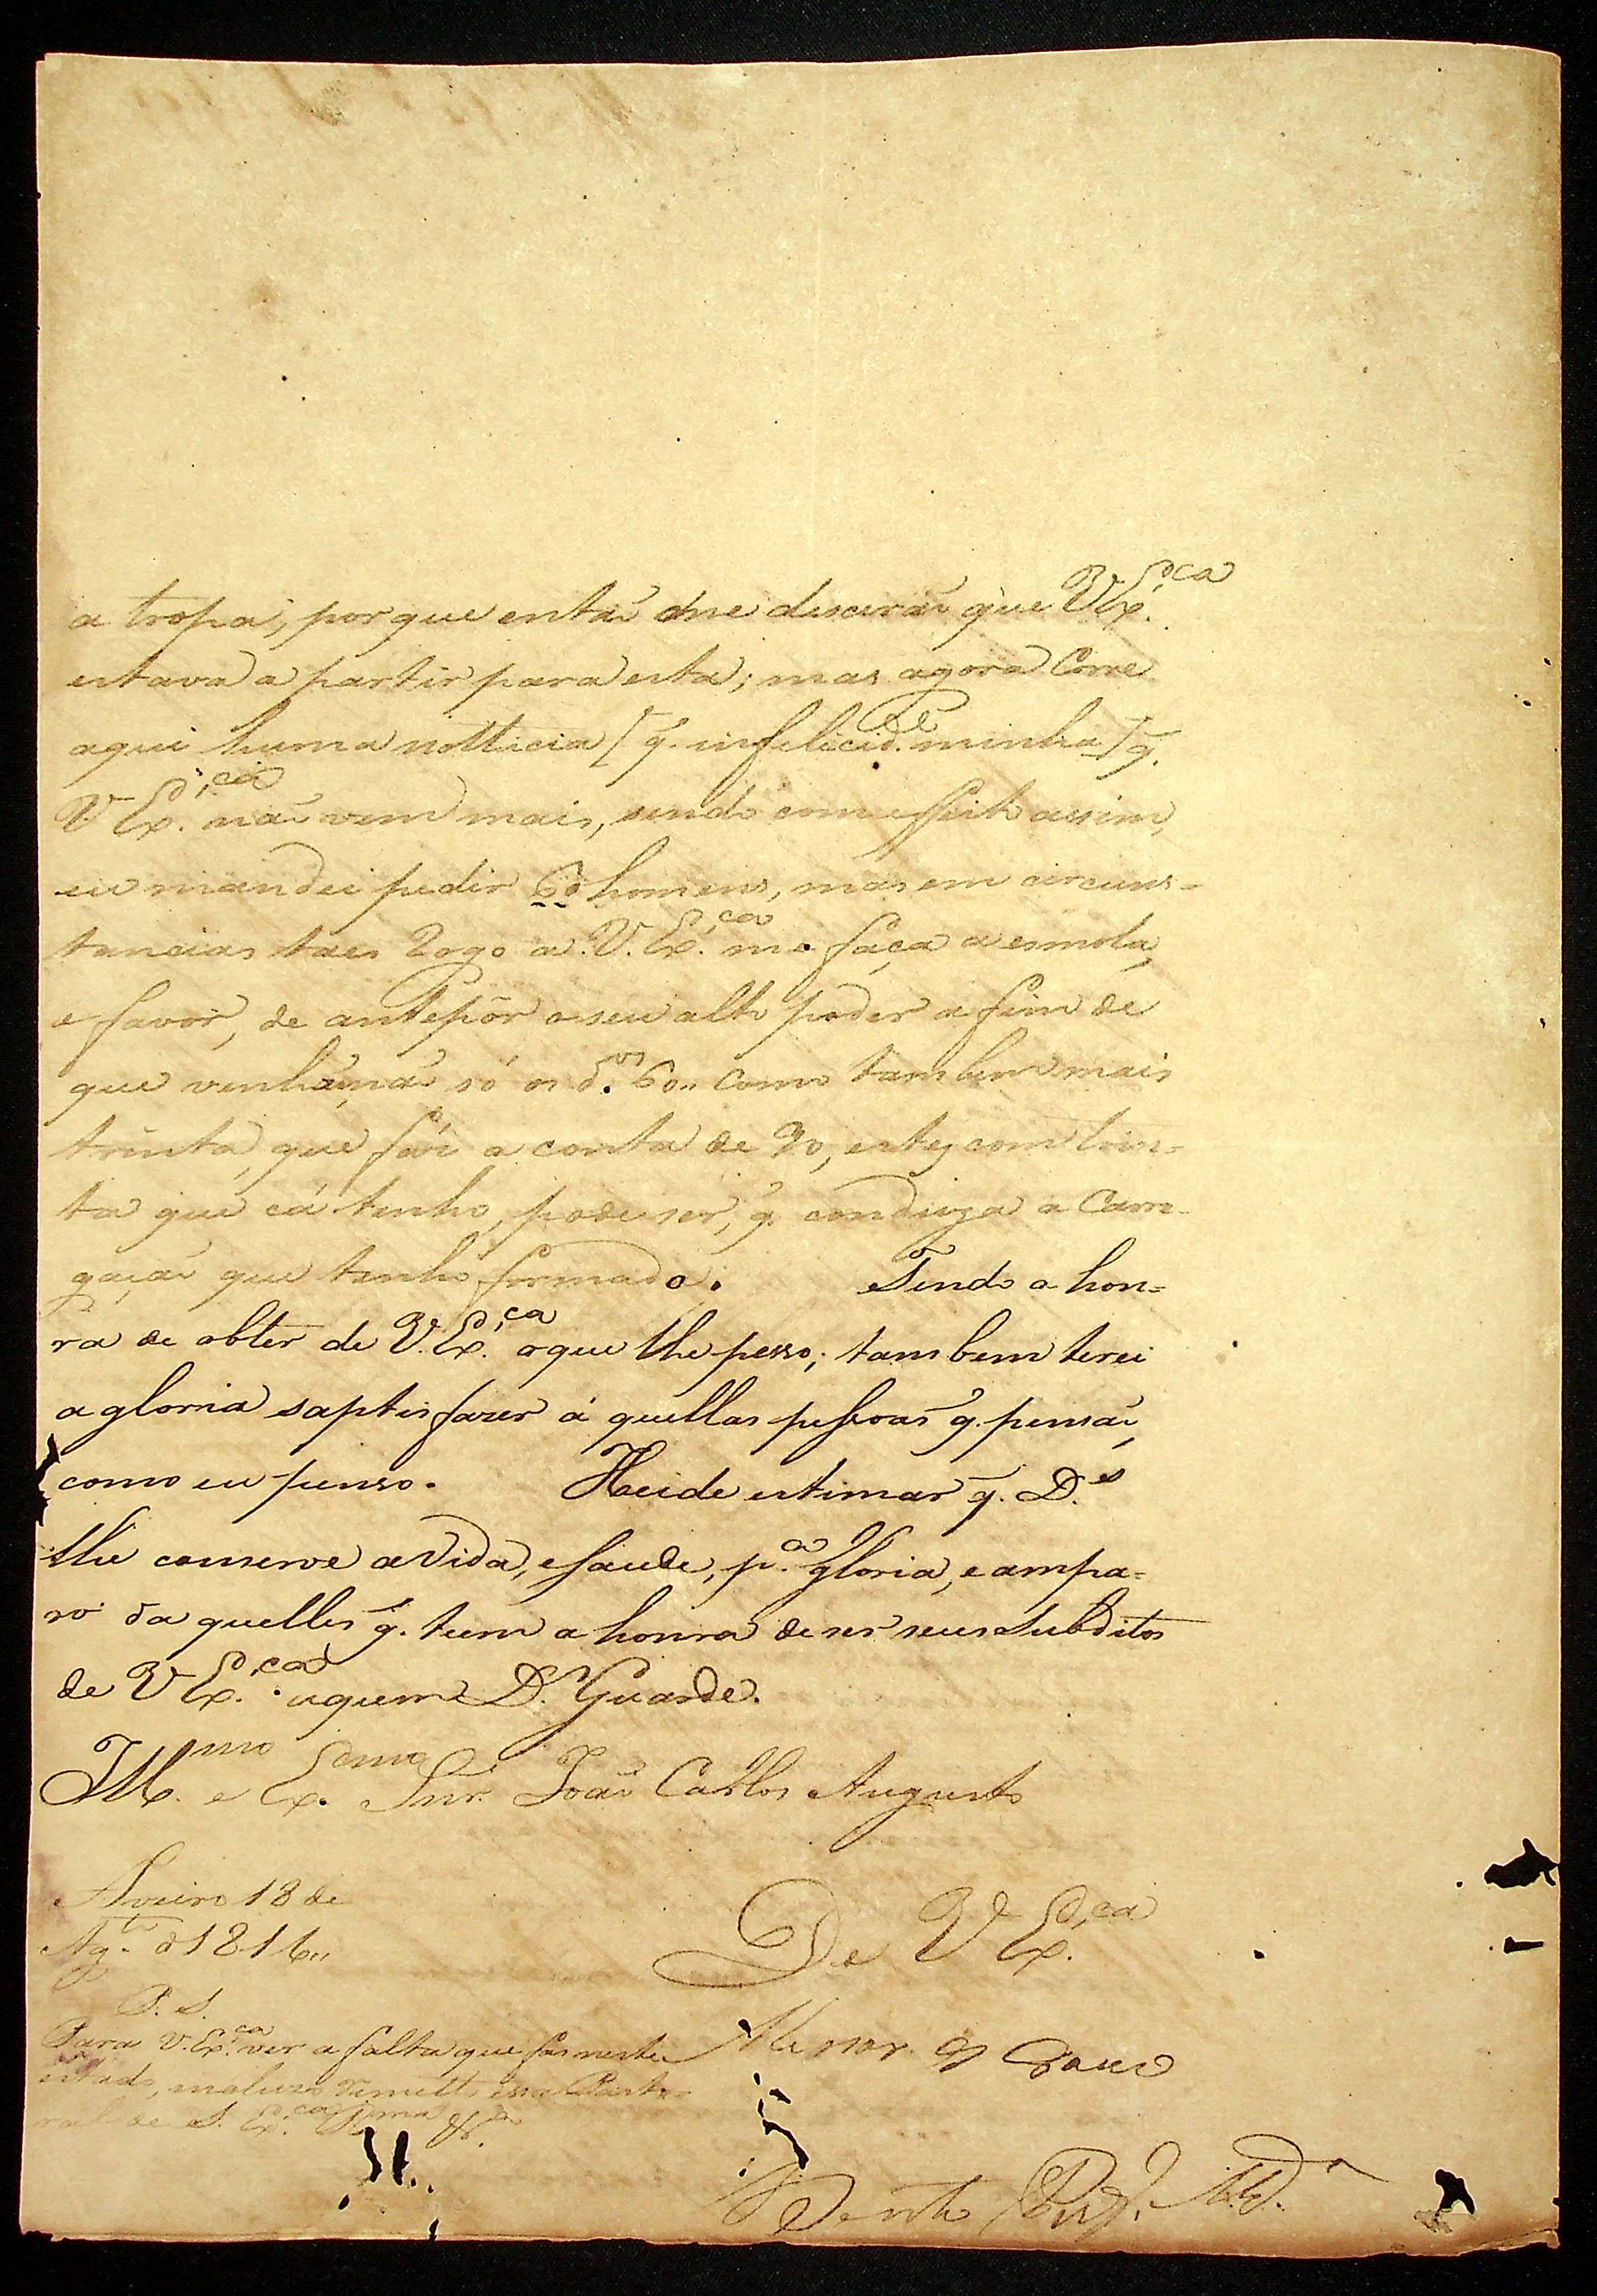 a tropa, porque entaõ me disceraõ que VEx.ᶜᵃ
estava a partir para esta; mas agora Corre
aqui huma notticia [q̃. infelicid.ᵈᵉ minha] q̃.
VEx.ᶜᵃ naõ vem mais, sendo com effeito assim,
eu mandei pedir 60 homens, mas em circuns-
tancias taes Rogo a V. Ex.ᶜᵃ me faça a esmola,
e favor, de antepôr o seu alto poder a fim de
que venhaõ, naõ só os d.ᵒˢ 60,, como tambem mais
trinta, que fás a conta de 90, estes com trin-
ta que cá tenho, pode ser, q̃. condiuza a Carre-
gaçaõ que tenho formado. Tendo a hon-
ra de obter de V. Ex.ᶜᵃ o que lhe pesso; tambem terei
a gloria saptisfazer á quellas pessoas q̃. pensaõ,
como eu penso. Heide estimar q̃. D.ˢ
lhe conserve a vida, e saude, p.ᵃ gloria, e ampa-
ro da quelles q̃. tem a honra de ser seus Subditos
de VEx.ᶜᵃ aquem D.ˢ Guarde.
Ill.ᵐᵒ e Ex.ᵐᵒ Snr. Joaõ Carlos Augusto
Aveiro 18 de
Ag.ᵗᵒ d 1816,,
De V Ex.ᶜᵃ
P. S.
Para V. Ex.ᶜᵃ ver a falta que fas neste
estado, maluco remetto essa Pasto-
ral de S. Ex.ᶜᵃ R.ᵐᵃ
Menor
Bento